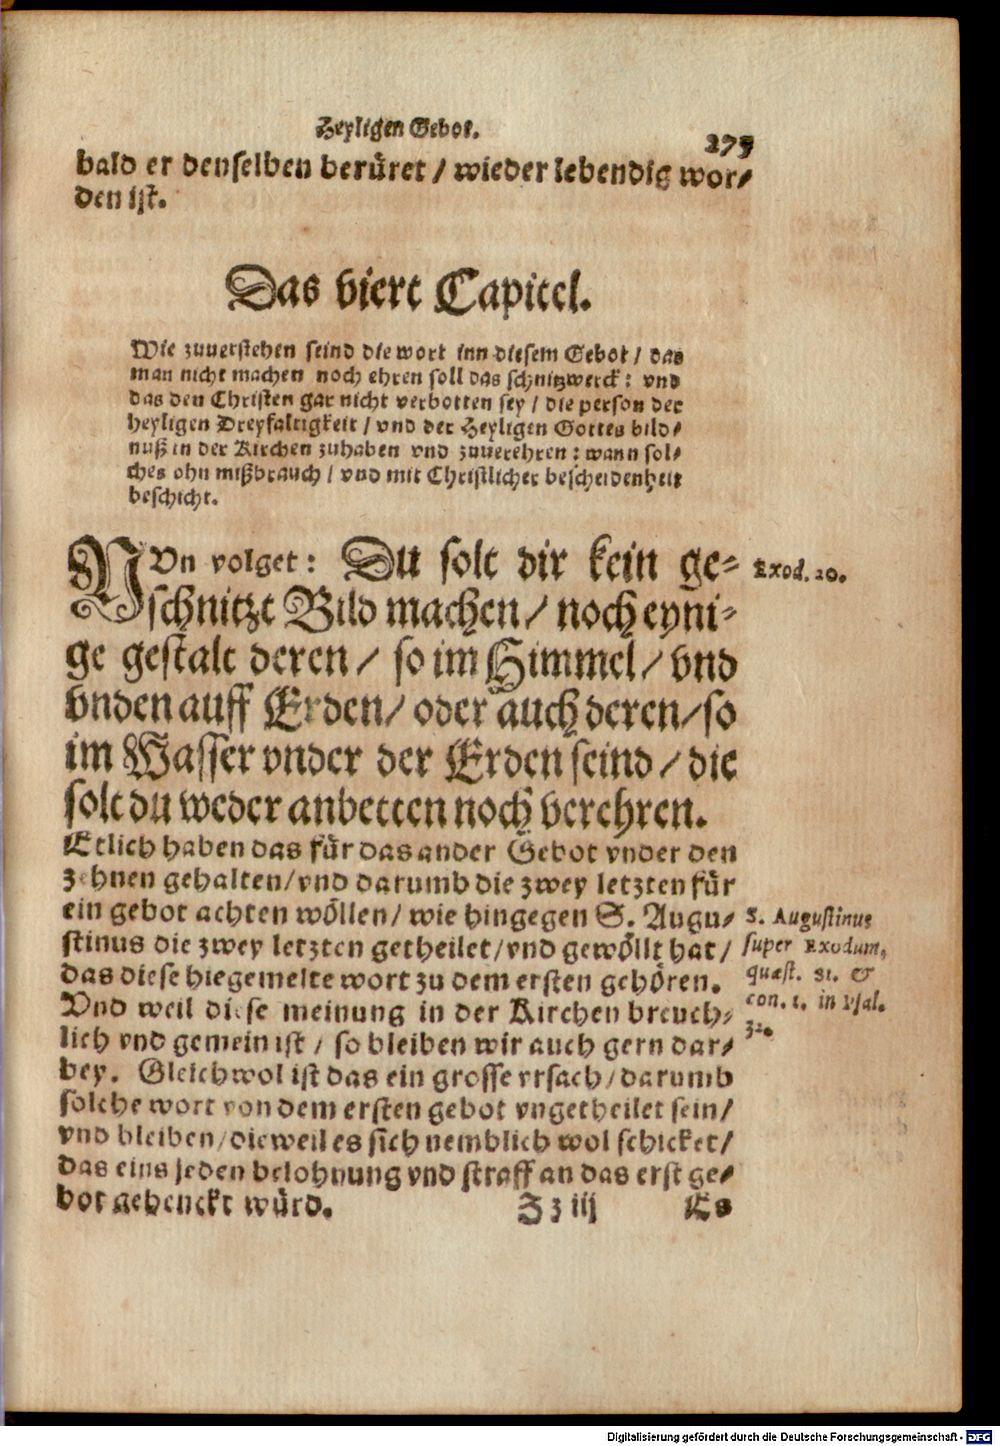 Heyligen Gebot.
275
bald er denselben berüret / wieder lebendig wor⸗
den ist.
Das viert Capitel.
Wie zuuerstehen seind die wort inn diesem Gebot / das
man nicht machen noch ehren soll das schnitzwerck: vnd
das den Christen gar nicht verbotten sey / die person der
heyligen Dreyfaltigkeit / vnd der Heyligen Gottes bild⸗
nuß in der Kirchen zuhaben vnd zuuerehren: wann sol⸗
ches ohn mißbrauch / vnd mit Christlicher bescheidenheit
beschicht.
NVn volget: Du solt dir kein ge⸗
schnitzt Bild machen / noch eyni⸗
ge gestalt deren / so im Himmel / vnd
vnden auff Erden / oder auch deren / so
im Wasser vnder der Erden seind / die
solt du weder anbetten noch verehren.
Exod. 20.
Etlich haben das für das ander Gebot vnder den
zehnen gehalten / vnd darumb die zwey letzten für
ein gebot achten wöllen / wie hingegen S. Augu⸗
stinus die zwey letzten getheilet / vnd gewöllt hat /
das diese hiegemelte wort zu dem ersten gehören.
Vnd weil diese meinung in der Kirchen breuch⸗
lich vnd gemein ist / so bleiben wir auch gern dar⸗
bey. Gleichwol ist das ein grosse vrsach / darumb
solche wort von dem ersten gebot vngetheilet sein /
vnd bleiben / dieweil es sich nemblich wol schicket /
das eins jeden belohnung vnd straff an das erst ge⸗
bot gehenckt würd.
S. Augustinus
super Exodum,
quæst. 81. &
con. 1. in psal.
32.
Zz iij
Es
Digitalisierung gefördert durch die Deutsche Forschungsgemeinschaft - DFG